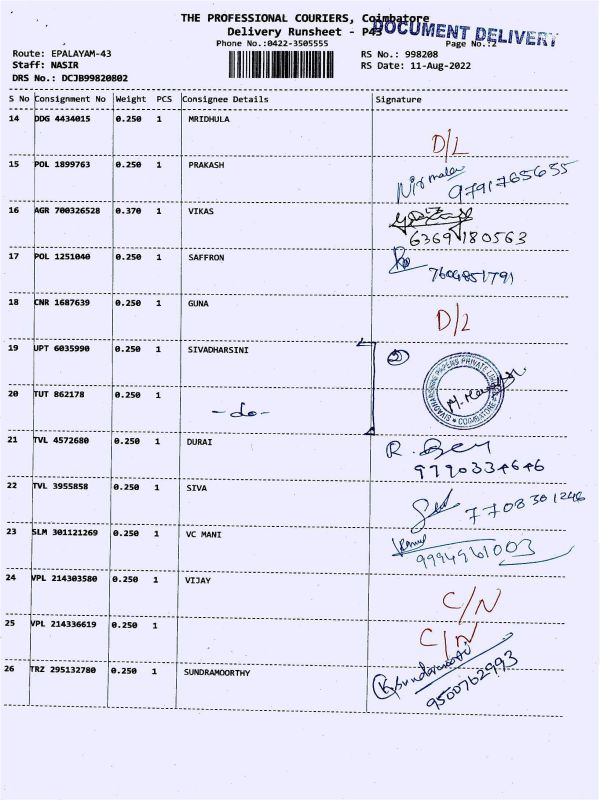 THE PROFESSIONAL COURIERS, Coimbatore
Delivery Runsheet - P43
DOCUMENT DELIVERY
Phone No.:0422-3505555
Page No.:2
Route: EPALAYAM-43
RS No.: 998208
Staff: NASIR
RS Date: 11-Aug-2022
DRS No.: DCJB99820802
S No Consignment No Weight PCS Consignee Details Signature
14 DDG 4434015 0.250 1 MRIDHULA
D/L
15 POL 1899763 0.250 1 PRAKASH
Nirmala
9791765655
16 AGR 700326528 0.370 1 VIKAS
6369180563
17 POL 1251040 0.250 1 SAFFRON
7604851791
18 CNR 1687639 0.250 1 GUNA
D/L
19 UPT 6035990 0.250 1 SIVADHARSINI
2
SIVADHARSHINI PAPERS PRIVATE LIMITED
* COIMBATORE *
20 TUT 862178 0.250 1 -do-
21 TVL 4572680 0.250 1 DURAI
R.
9790334646
22 TVL 3955858 0.250 1 SIVA
7708301246
23 SLM 301121269 0.250 1 VC MANI
9994961003
24 VPL 214303580 0.250 1 VIJAY
C/N
25 VPL 214336619 0.250 1
C/N
26 TRZ 295132780 0.250 1 SUNDRAMOORTHY
K Sundaramoorthi
9500762993